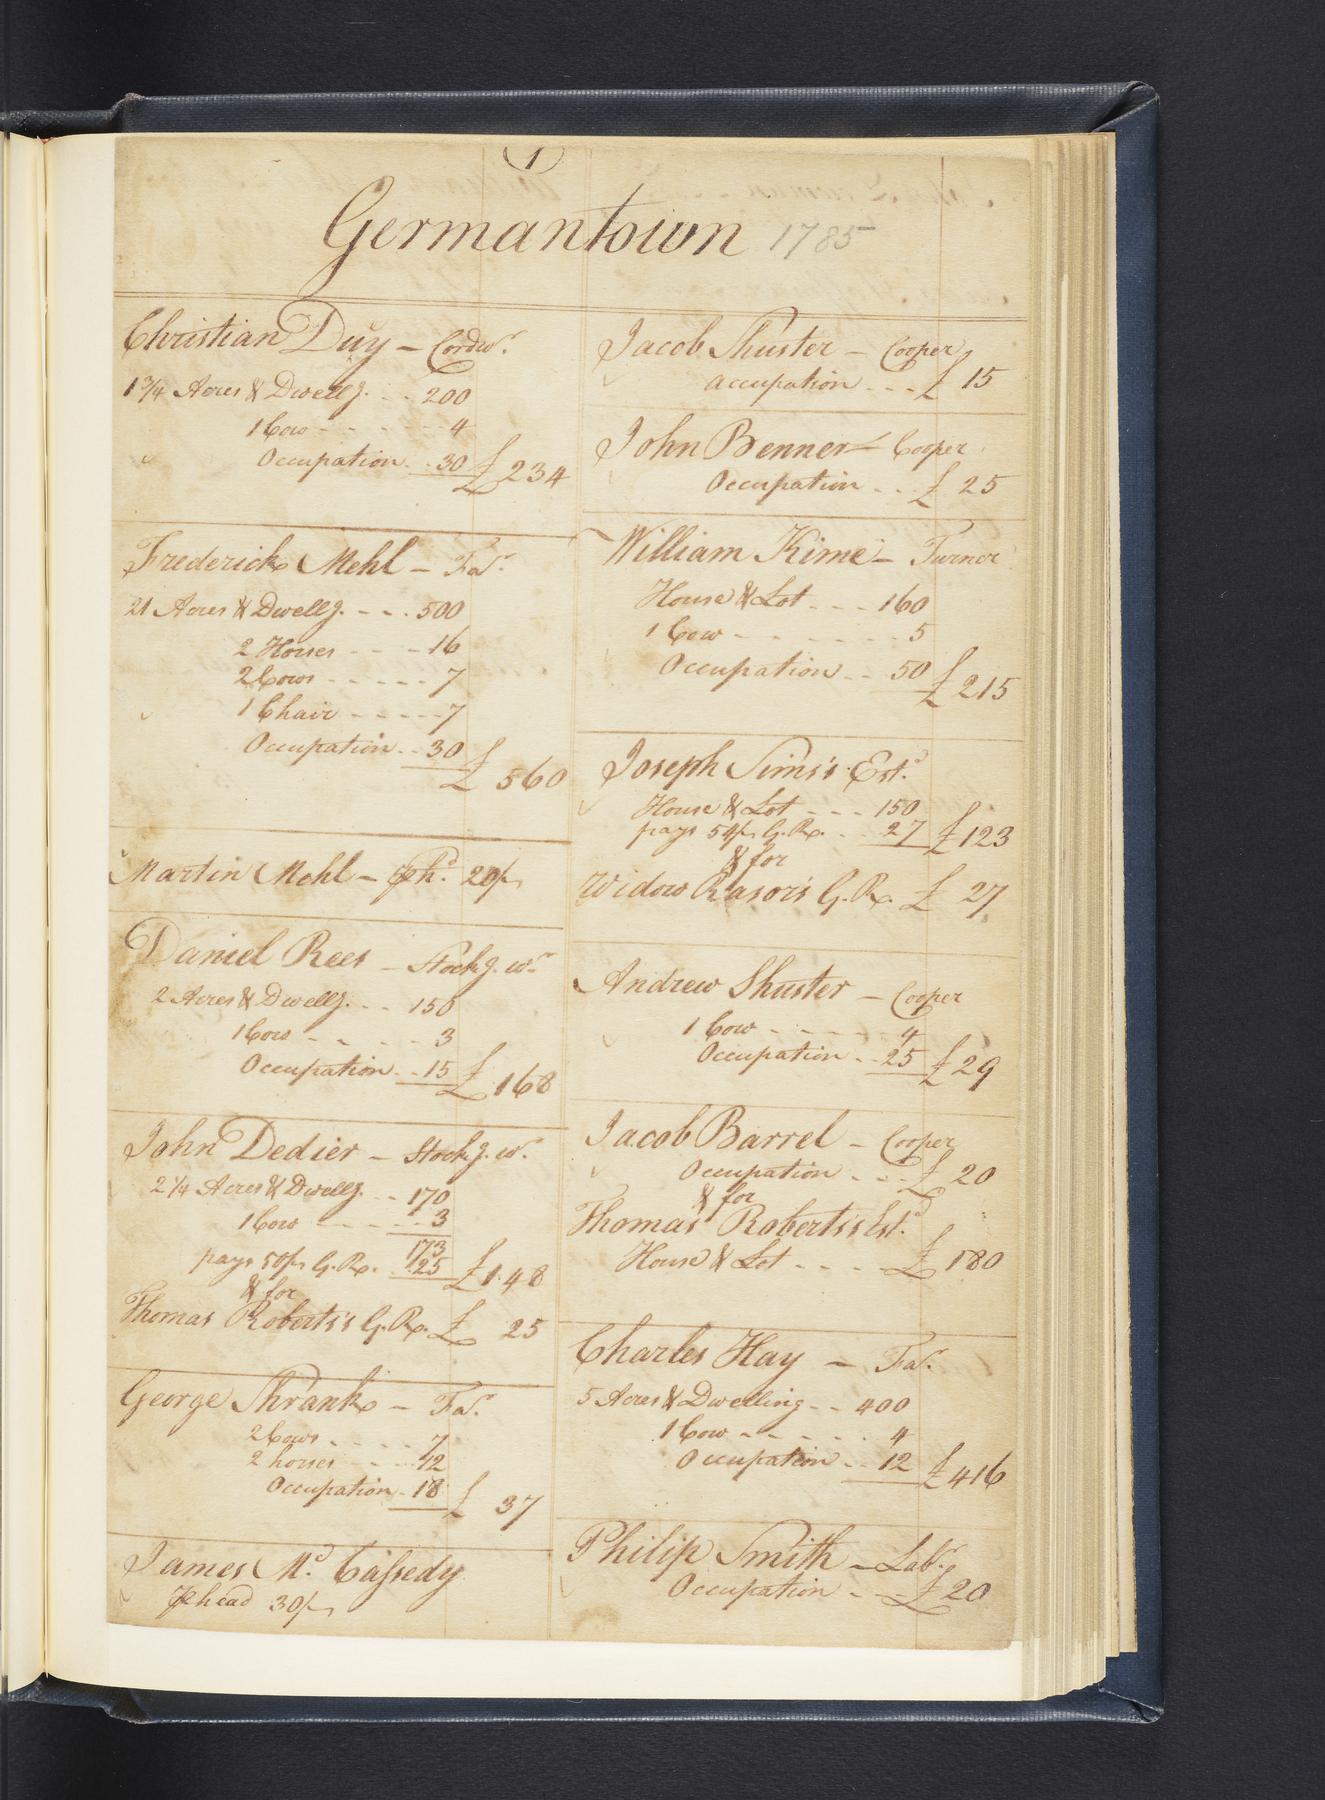 1
Germantown 1785
Christian Duy – Cordwr.
1 3/4 Acres & Dwellg. - - 200
1 Cow - - - - - 4
Occupation - - 30 £ 234
Frederick Mehl – Far.
21 Acres & Dwellg. - - - 500
2 Horses - - - - 16
2 Cows - - - - - 7
1 Chair - - - - - 7
Occupation - - 30 £ 560
Martin Mehl – ⅌ hd. 20/-
Daniel Rees – Stockg. wr.
2 Acres & Dwellg. - - - 150
1 Cow - - - - - 3
Occupation - - 15 £ 168
John Dedier – Stockg. wr.
2 1/4 Acres & Dwellg. - - 170
1 Cow - - - - - - 3
173
pays 50/- G. R. - - 25 £ 148
& for
Thomas Roberts's G. R. £ 25
George Shrank – Far.
2 Cows - - - - - 7
2 horses - - - - 12
Occupation - 18 £ 37
James Mc. Cassedy
⅌ head 30/-
Jacob Shuster – Cooper
accupation - - - £ 15
John Benner – Cooper
Occupation - - - £ 25
William Kime – Turner
House & Lot - - - 160
1 Cow - - - - - - - 5
Occupation - - 50 £ 215
Joseph Sims's Estd.
House & Lot - - - 150
pays 50/- G. R. - - 27 £ 123
& for
Widow Rasor's G. R. £ 27
Andrew Shuster – Cooper
1 Cow - - - - - - 4
Occupation - - 25 £ 29
Jacob Barrel – Cooper
Occupation - - - £ 20
& for
Thomas Roberts's Estd.
House & Lot - - - - £ 180
Charles Hay – Far.
5 Acres & Dwelling - - 400
1 Cow - - - - - - 4
Occupation - - 12 £ 416
Philip Smith – Labr.
Occupation - - - £ 20